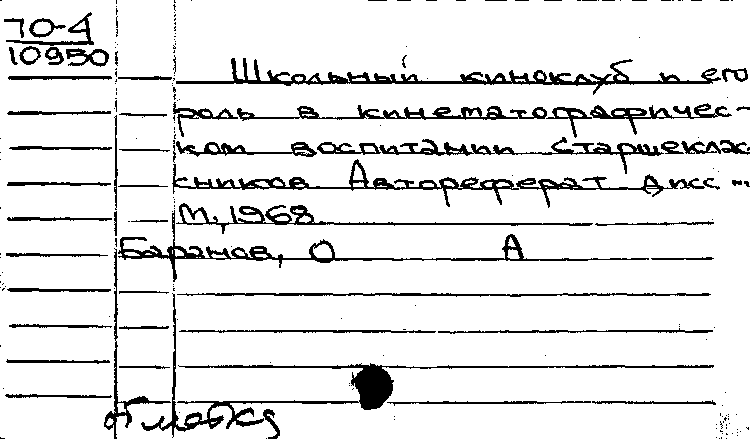 70-4
10950
Школьный киноклуб и его
роль в кинематографичес-
ком воспитании старшеклас
сников. Автореферат дисс...
М., 1968.
Баранов, О А